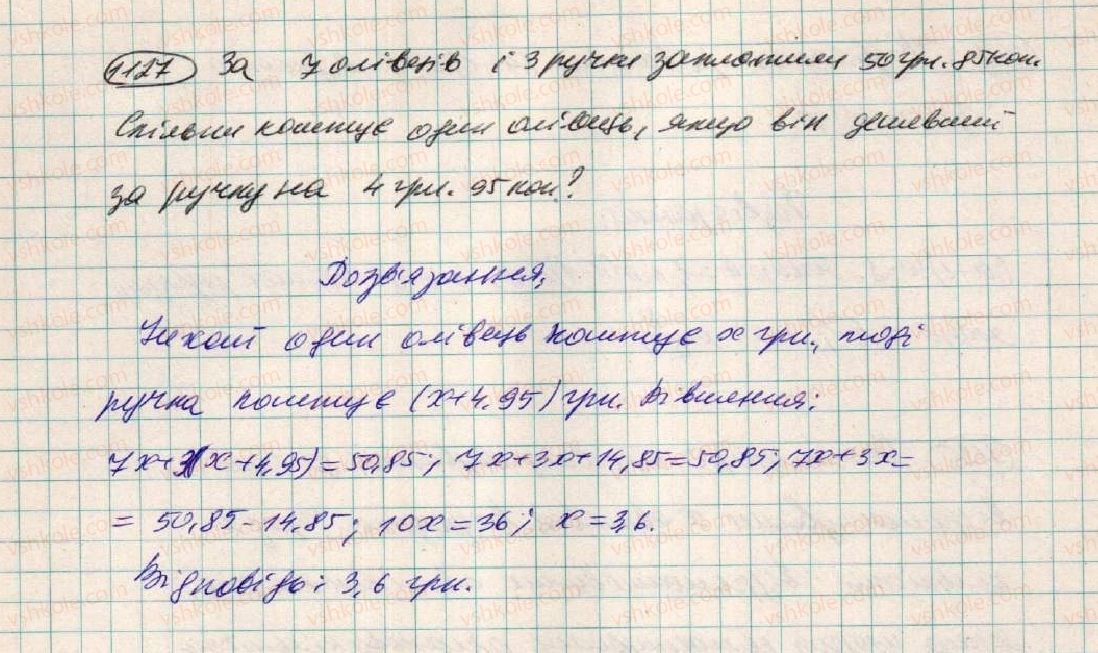 1127 За 7 олівців і 3 ручки заплатили 50 грн. 85 коп.
Скільки коштує один олівець, якщо він дешевший
за ручку на 4 грн. 95 коп.?
Розв'язання,
Нехай один олівець коштує x грн., тоді
ручка коштує (x+4.95) грн. Рівняння:
7x+3(x+4,95)=50,85; 7x+3x+14,85=50,85; 7x+3x=
= 50,85-14.85; 10x=36; x=3,6.
Відповідь: 3,6 грн.